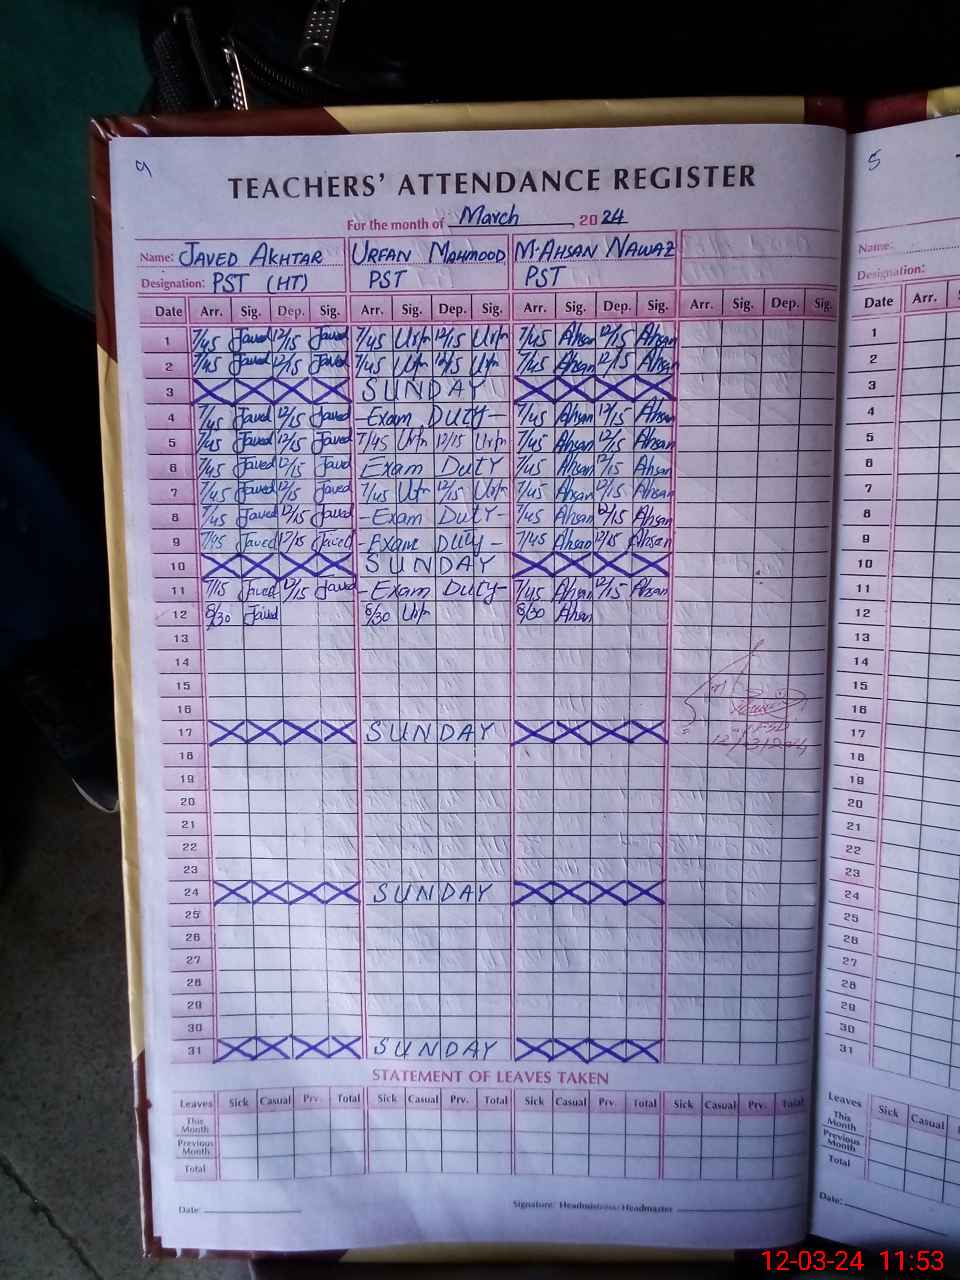 9
TEACHERS' ATTENDANCE REGISTER
For the month of March 2024
Name: JAVED AKHTAR URFAN MAHMOOD M.AHSAN NAWAZ
Designation: PST (HT) PST PST
Date Arr. Sig. Dep. Sig. Arr. Sig. Dep. Sig. Arr. Sig. Dep. Sig. Arr. Sig. Dep. Sig.
1 7/45 Javed 12/15 Javed 7/45 12/15 7/45 Ahsan 12/15 Ahsan
2 7/45 Javed 12/15 Javed 7/45 12/15 7/45 Ahsan 12/15 Ahsan
3 SUNDAY
4 7/45 Javed 12/15 Javed - Exam DUTY - 7/45 Ahsan 12/15 Ahsan
5 7/45 Javed 12/15 Javed 7/45 12/15 7/45 Ahsan 12/15 Ahsan
6 7/45 Javed 12/15 Javed Exam DUTY 7/45 Ahsan 12/15 Ahsan
7 7/45 Javed 12/15 Javed 7/45 12/15 7/45 Ahsan 12/15 Ahsan
8 7/45 Javed 12/15 Javed - Exam DUTY - 7/45 Ahsan 12/15 Ahsan
9 7/45 Javed 12/15 Javed - Exam DUTY - 7/45 Ahsan 12/15 Ahsan
10 SUNDAY
11 7/15 Javed 12/15 Javed - Exam DUTY - 7/45 Ahsan 12/15 Ahsan
12 8/30 Javed 8/30 8/30 Ahsan
13
14
15
16
17 SUNDAY
12/3/2024
18
19
20
21
22
23
24 SUNDAY
25
26
27
28
29
30
31 SUNDAY
STATEMENT OF LEAVES TAKEN
Leaves Sick Casual Prv. Total Sick Casual Prv. Total Sick Casual Prv. Total Sick Casual Prv. Total
This Month
Previous Month
Total
Date: Signature: Headmistress/Headmaster
5
Name:
Designation:
Date Arr.
1
2
3
4
5
6
7
8
9
10
11
12
13
14
15
16
17
18
19
20
21
22
23
24
25
26
27
28
29
30
31
Leaves Sick Casual
This Month
Previous Month
Total
Date:
12-03-24 11:53